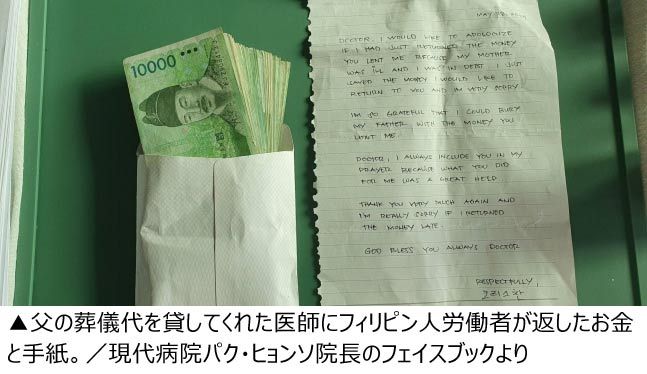 10000
MAY
DOCTOR, I WOULD LIKE TO APOLOGIZE
IF I HAD JUST RETURNED THE MONEY
YOU LENT ME BECAUSE MY MOTHER
WAS ILL AND I WAS IN DEBT. I JUST
SAVED THE MONEY I WOULD LIKE TO
RETURN TO YOU AND I'M VERY SORRY
I'M SO GRATEFUL THAT I COULD BURY
MY FATHER WITH THE MONEY YOU
LENT ME.
DOCTOR, I ALWAYS INCLUDE YOU IN MY
PRAYER BECAUSE WHAT YOU DID
FOR ME WAS A GREAT HELP
THANK YOU VERY MUCH AGAIN AND
I'M REALLY SORRY IF I RETURNED
THE MONEY LATE.
GOD BLESS YOU ALWAYS DOCTOR
RESPECTFULLY,
▲父の葬儀代を貸してくれた医師にフィリピン人労働者が返したお金
と手紙。／現代病院パク・ヒョンソ院長のフェイスブックより